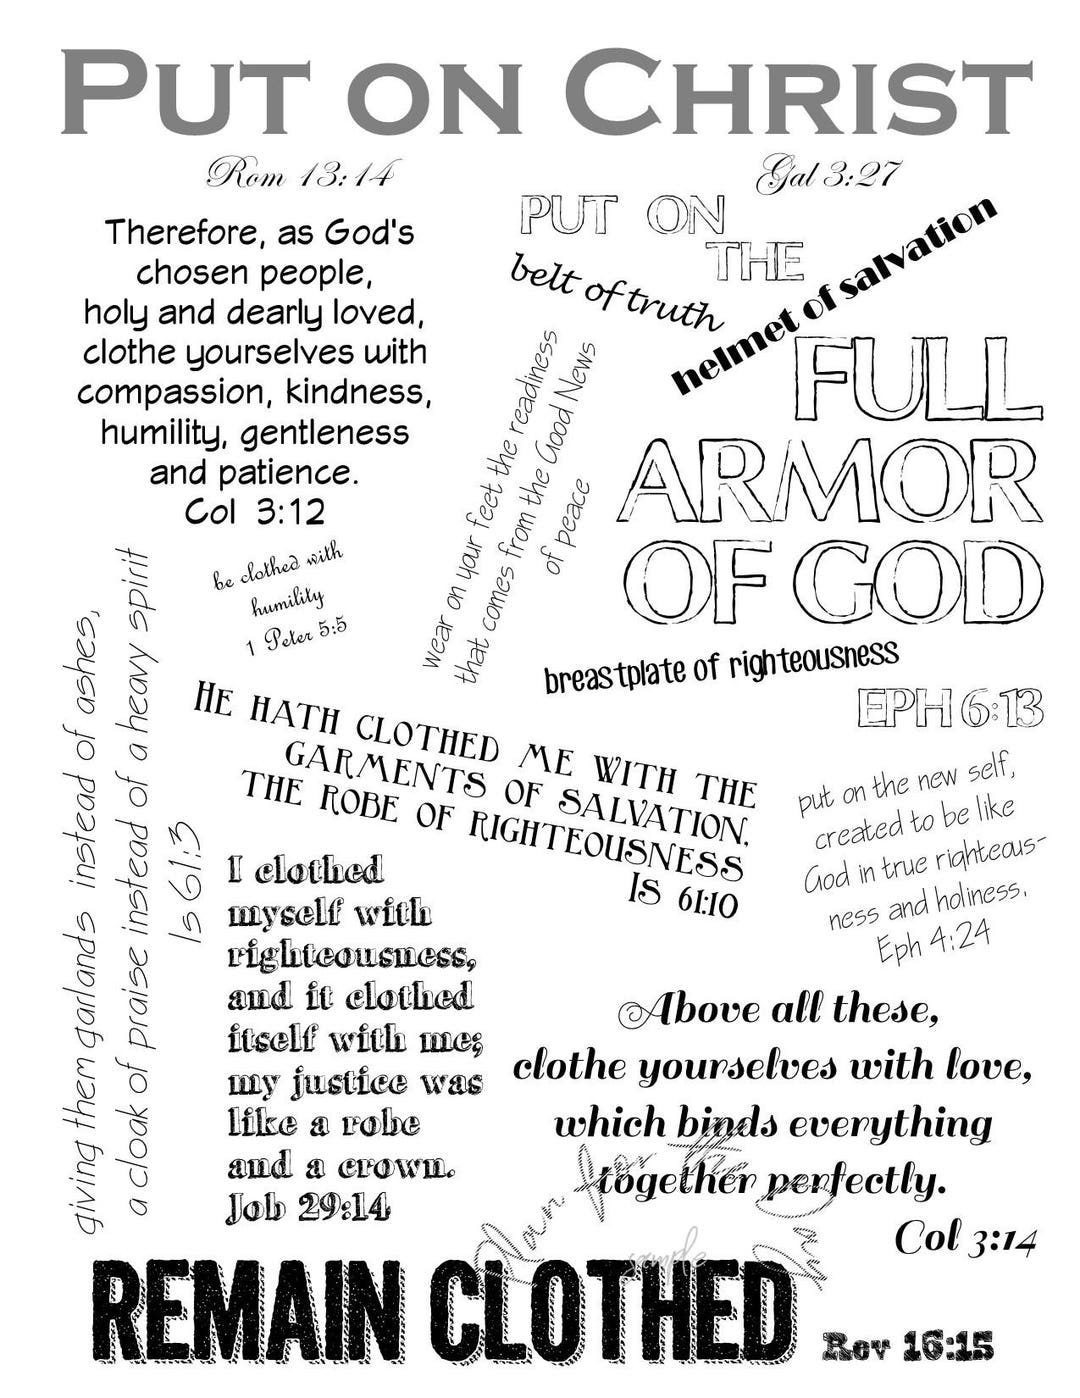 PUT ON CHRIST
Rom 13:14
Gal 3:27
Therefore, as God's
chosen people,
holy and dearly loved,
clothe yourselves with
compassion, kindness,
humility, gentleness
and patience.
Col 3:12
PUT ON
THE
belt of truth
helmet of salvation
FULL
ARMOR
OF GOD
wear on your feet the readiness
that comes from the Good News
of peace
breastplate of righteousness
EPH 6:13
be clothed with
humility
1 Peter 5:5
giving them garlands instead of ashes,
a cloak of praise instead of a heavy spirit
Is 61:3
HE HATH CLOTHED ME WITH THE
GARMENTS OF SALVATION,
THE ROBE OF RIGHTEOUSNESS
IS 61:10
put on the new self,
created to be like
God in true righteous-
ness and holiness.
Eph 4:24
I clothed
myself with
righteousness,
and it clothed
itself with me;
my justice was
like a robe
and a crown.
Job 29:14
Above all these,
clothe yourselves with love,
which binds everything
together perfectly.
Col 3:14
sample
REMAIN CLOTHED
Rev 16:15